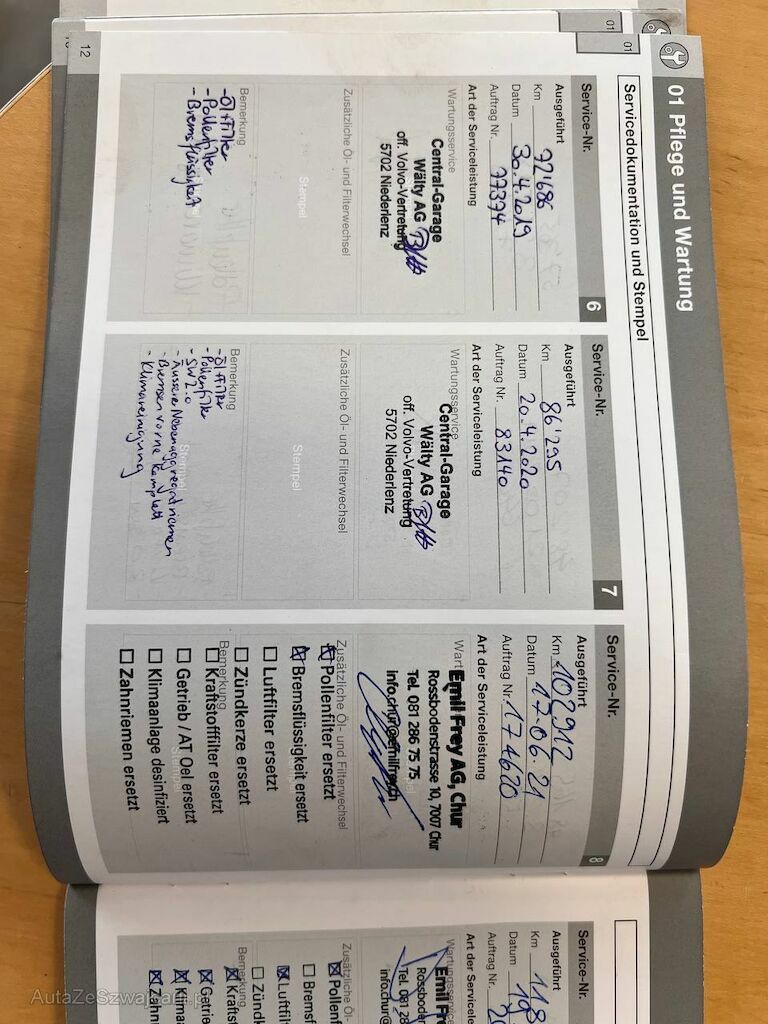 01 Pflege und Wartung
Servicedokumentation und Stempel
01
01
12
Service-Nr.
6
Ausgeführt
Km 72'686
Datum 30.4.2019
Auftrag Nr. 77394
Art der Serviceleistung
Wartungsservice
Central-Garage
Wälty AG
off. Volvo-Vertretung
5702 Niederlenz
Zusätzliche Öl- und Filterwechsel
Stempel
Bemerkung
- Öl + Filter
- Pollenfilter
- Bremsflüssigkeit
Service-Nr.
7
Ausgeführt
Km 86'295
Datum 20.4.2020
Auftrag Nr. 83140
Art der Serviceleistung
Wartungsservice
Central-Garage
Wälty AG
off. Volvo-Vertretung
5702 Niederlenz
Zusätzliche Öl- und Filterwechsel
Stempel
Bemerkung
- Öl + Filter
- Pollenfilter
- SW 2.0
- Äussere Nebenaggregatriemen
- Bremsen vorne komplett
- Klimareinigung
Service-Nr.
8
Ausgeführt
Km 102912
Datum 17.06.21
Auftrag Nr. 174620
Art der Serviceleistung
Emil Frey AG, Chur
Rossbodenstrasse 10, 7007 Chur
Tel. 081 286 75 75
info.chur@emilfrey.ch
Zusätzliche Öl- und Filterwechsel
Pollenfilter ersetzt
Bremsflüssigkeit ersetzt
Luftfilter ersetzt
Zündkerze ersetzt
Bemerkung
Kraftstofffilter ersetzt
Getrieb / AT Oel ersetzt
Klimaanlage desinfiziert
Zahnriemen ersetzt
Service-Nr.
Ausgeführt
Km 118
Datum 19
Auftrag Nr. 20
Art der Serviceleist
Wartungsservice
Emil Fr
Rossboden
Tel. 081 28
info.chur@
Zusätzliche Öl- und
Pollen
Bremsf
Luftfil
Zünd
Bemerkung
Kraftst
Getrie
Klima
Zahn
AutaZeSzwajcarii